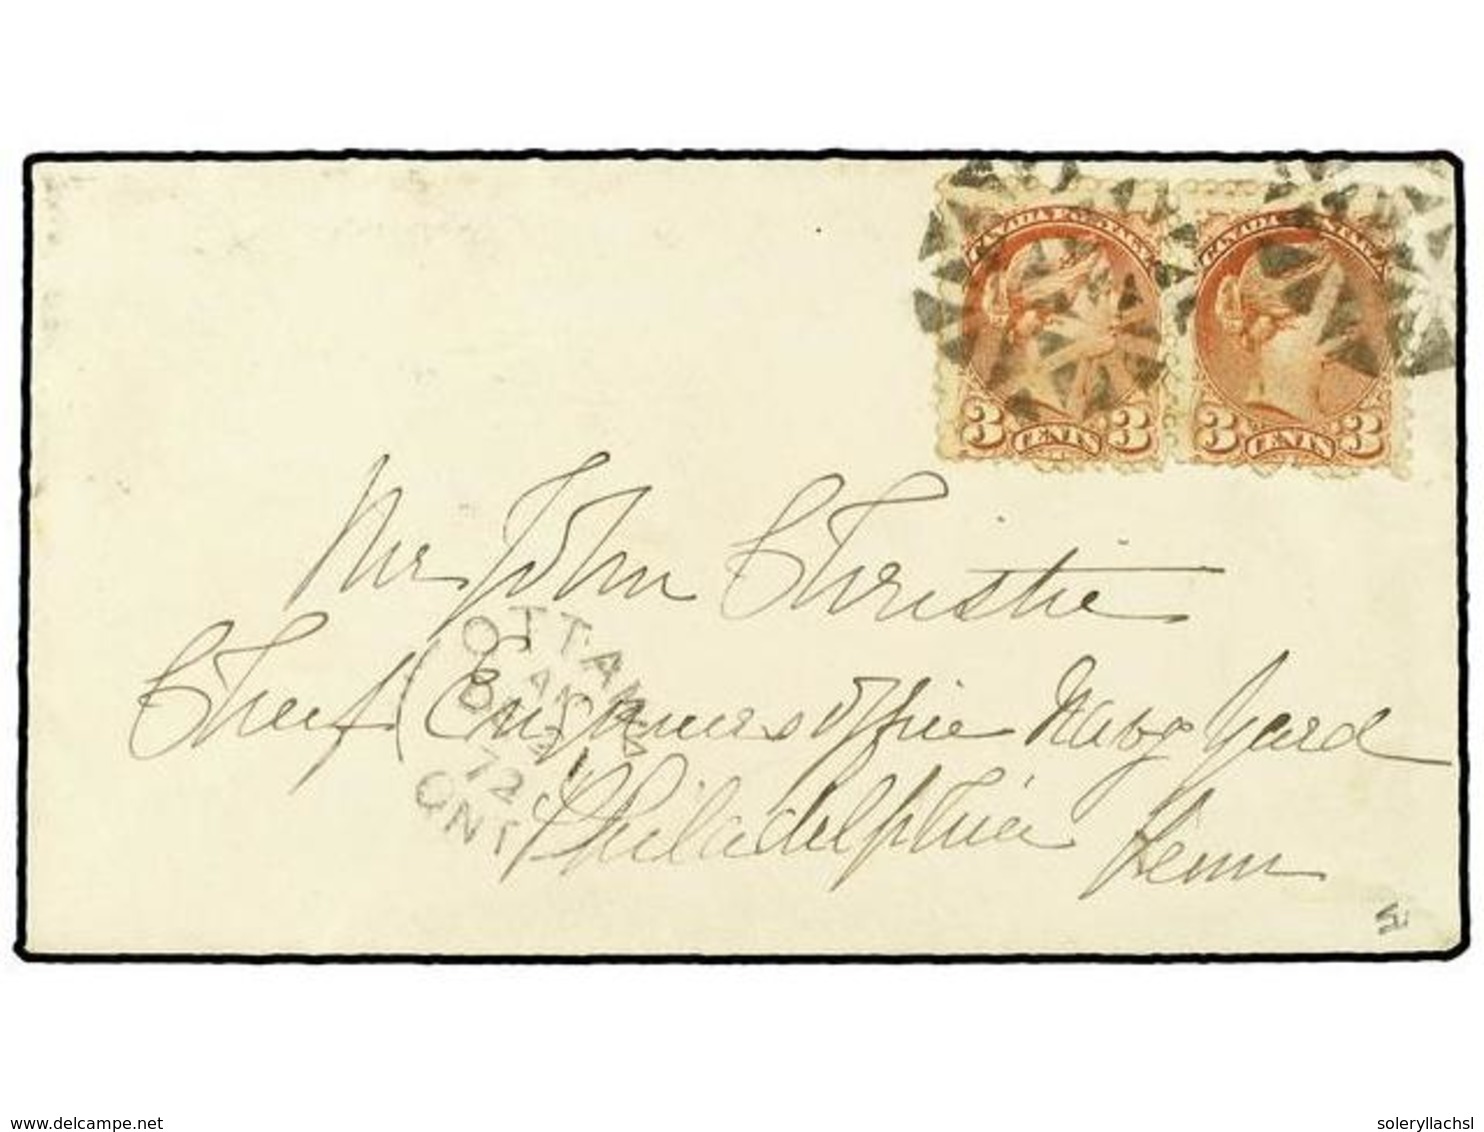 CANADA POSTAGE CANADA POSTAGE
3 CENTS 3 3 CENTS 3
Mr John Christie
OTTAWA
Chief Engineers Office Navy Yard
72
ONT
Philadelphia Penn
delcampe.net
soleryllachsl